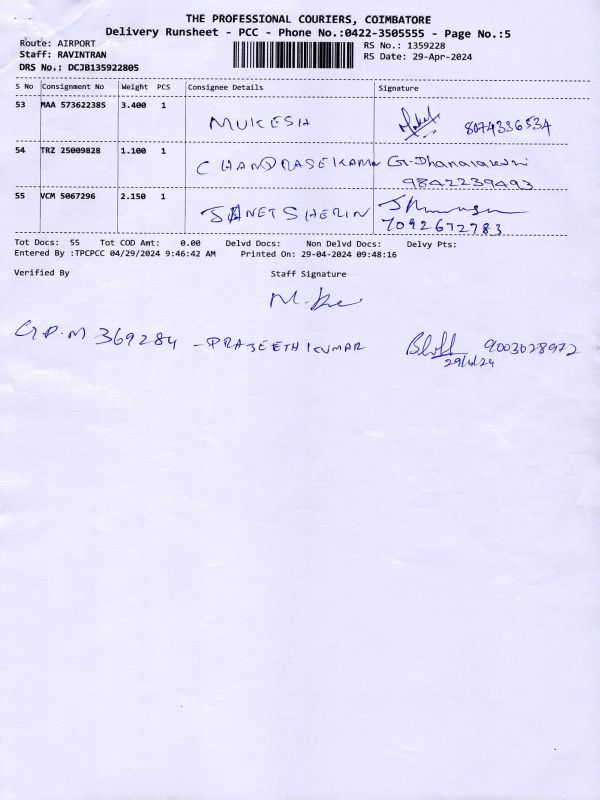 THE PROFESSIONAL COURIERS, COIMBATORE
Delivery Runsheet - PCC - Phone No.:0422-3505555 - Page No.:5
Route: AIRPORT RS No.: 1359228
Staff: RAVINTRAN RS Date: 29-Apr-2024
DRS No.; DCJB135922805
S No Consignment No Weight PCS Consignee Details Signature
53 MAA 573622385 3.400 1 MUKESH 8074336534
54 TRZ 25009828 1.100 1 CHANDRASEKARAN G. Dhanalakshmi
9842239493
55 VCM 5067296 2.150 1 JANET SHERIN
7092672783
Tot Docs: 55 Tot COD Amt: 0.00 Delvd Docs: Non Delvd Docs: Delvy Pts:
Entered By :TPCPCC 04/29/2024 9:46:42 AM Printed On: 29-04-2024 09:48:16
Verified By Staff Signature
G.P.M 369284 - PRAJEETH KUMAR 9003028972
29/4/24